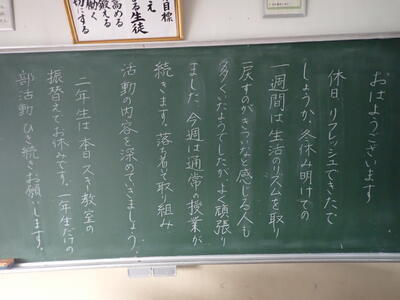 目標
え
る生徒
高める
鍛える
働く
切にする
おはようございます
休日、リフレッシュできたで
しょうか。冬休み明けての
一週間は、生活のリズムを取り
戻すのがきついなと感じる人も
多くいたようでしたが、よく頑張り
ました。今週は通常の授業が
続きます。落ち着いて取り組み
活動の内容を深めていきましょう。
二年生は本日スキー教室の
振替えでお休みです。一年生だけの
部活動、ひき続きお願いします。